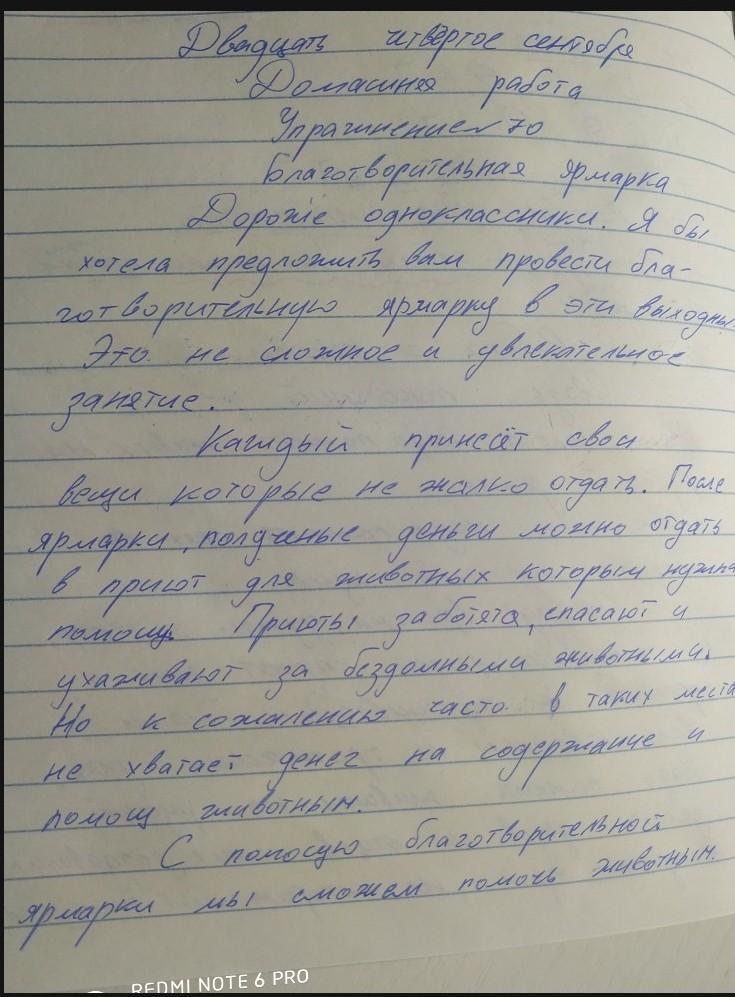 Двадцать четвёртое сентября
Домашняя работа
Упражнение № 70
Благотворительная ярмарка
Дорогие одноклассники. Я бы
хотела предложить вам провести бла-
готворительную ярмарку в эти выходны
Это не сложное и увлекательное
занятие.
Каждый принесёт свои
вещи которые не жалко отдать. После
ярмарки, полученые деньги можно отдать
в приют для животных которым нужна
помощь. Приюты заботятся, спасают и
ухаживают за бездомными животными.
Но к сожалению часто в таких места
не хватает денег на содержание и
помощ животным.
С помощую благотворительной
ярмарки мы сможем помочь животным.
REDMI NOTE 6 PRO